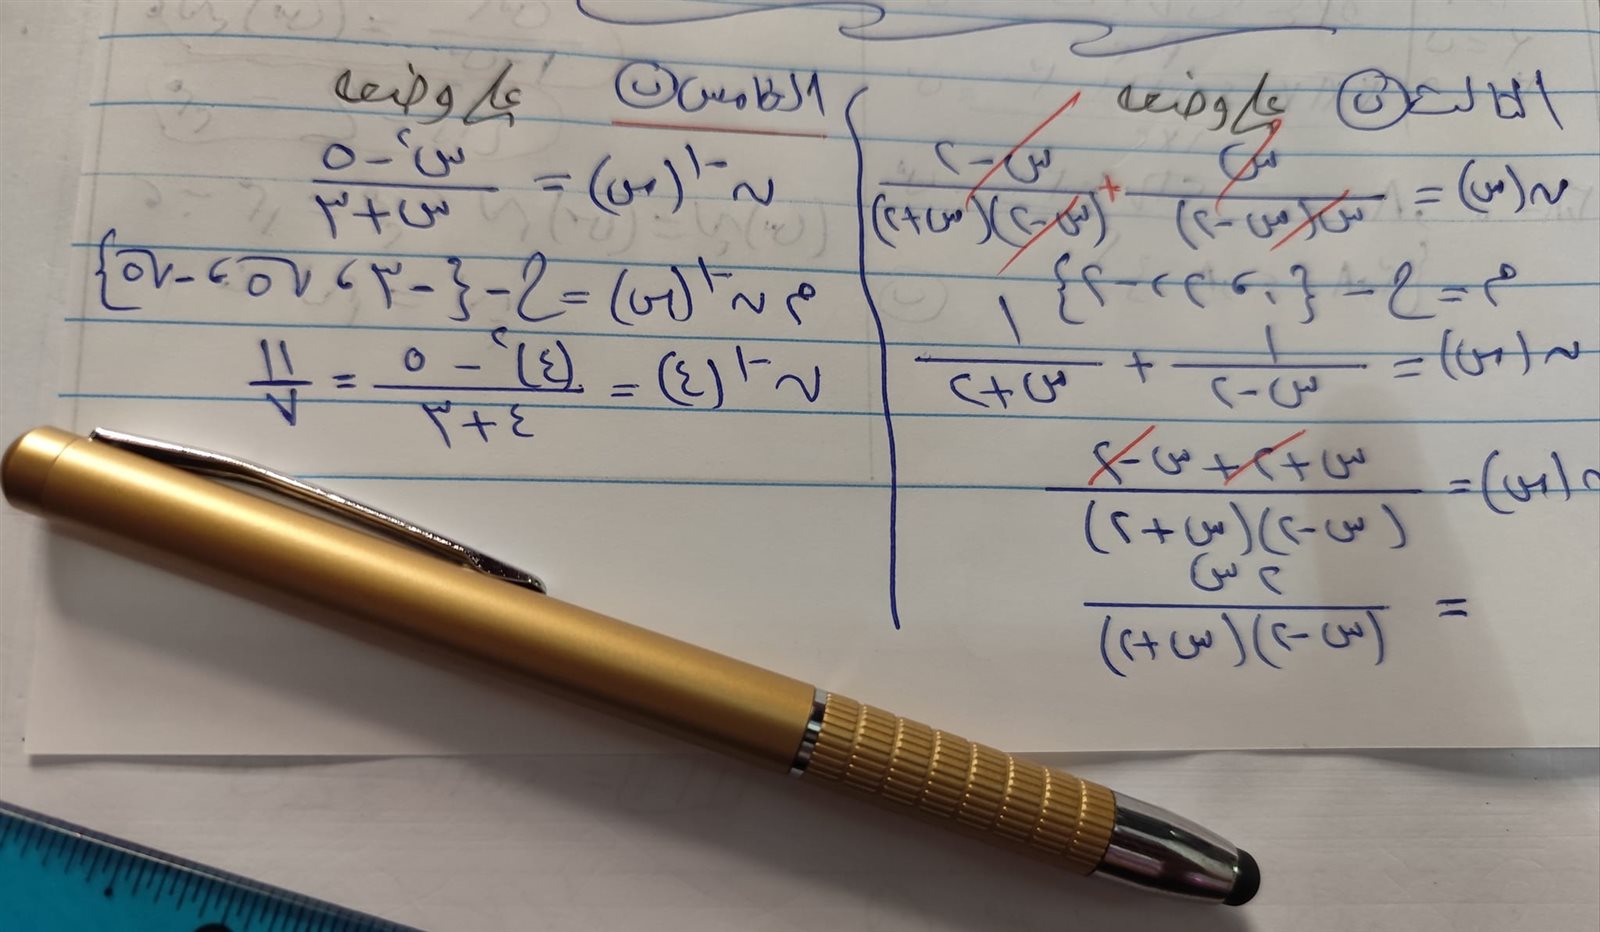 الثالث ن علي وضعه
ن(س) = س / س(س-٢) + س-٢ / (س-٢)(س+٢)
م = ح - {٠ ، ٢ ، -٢}
ن(س) = ١ / س-٢ + ١ / س+٢
ن(س) = س+٢+س-٢ / (س-٢)(س+٢)
= ٢س / (س-٢)(س+٢)
الخامس ن علي وضعه
ن⁻¹(س) = س² - ٥ / س+٣
م ن⁻¹(س) = ح - {-٣ ، √٥ ، -√٥}
ن⁻¹(٤) = (٤)² - ٥ / ٤+٣ = ١١ / ٧